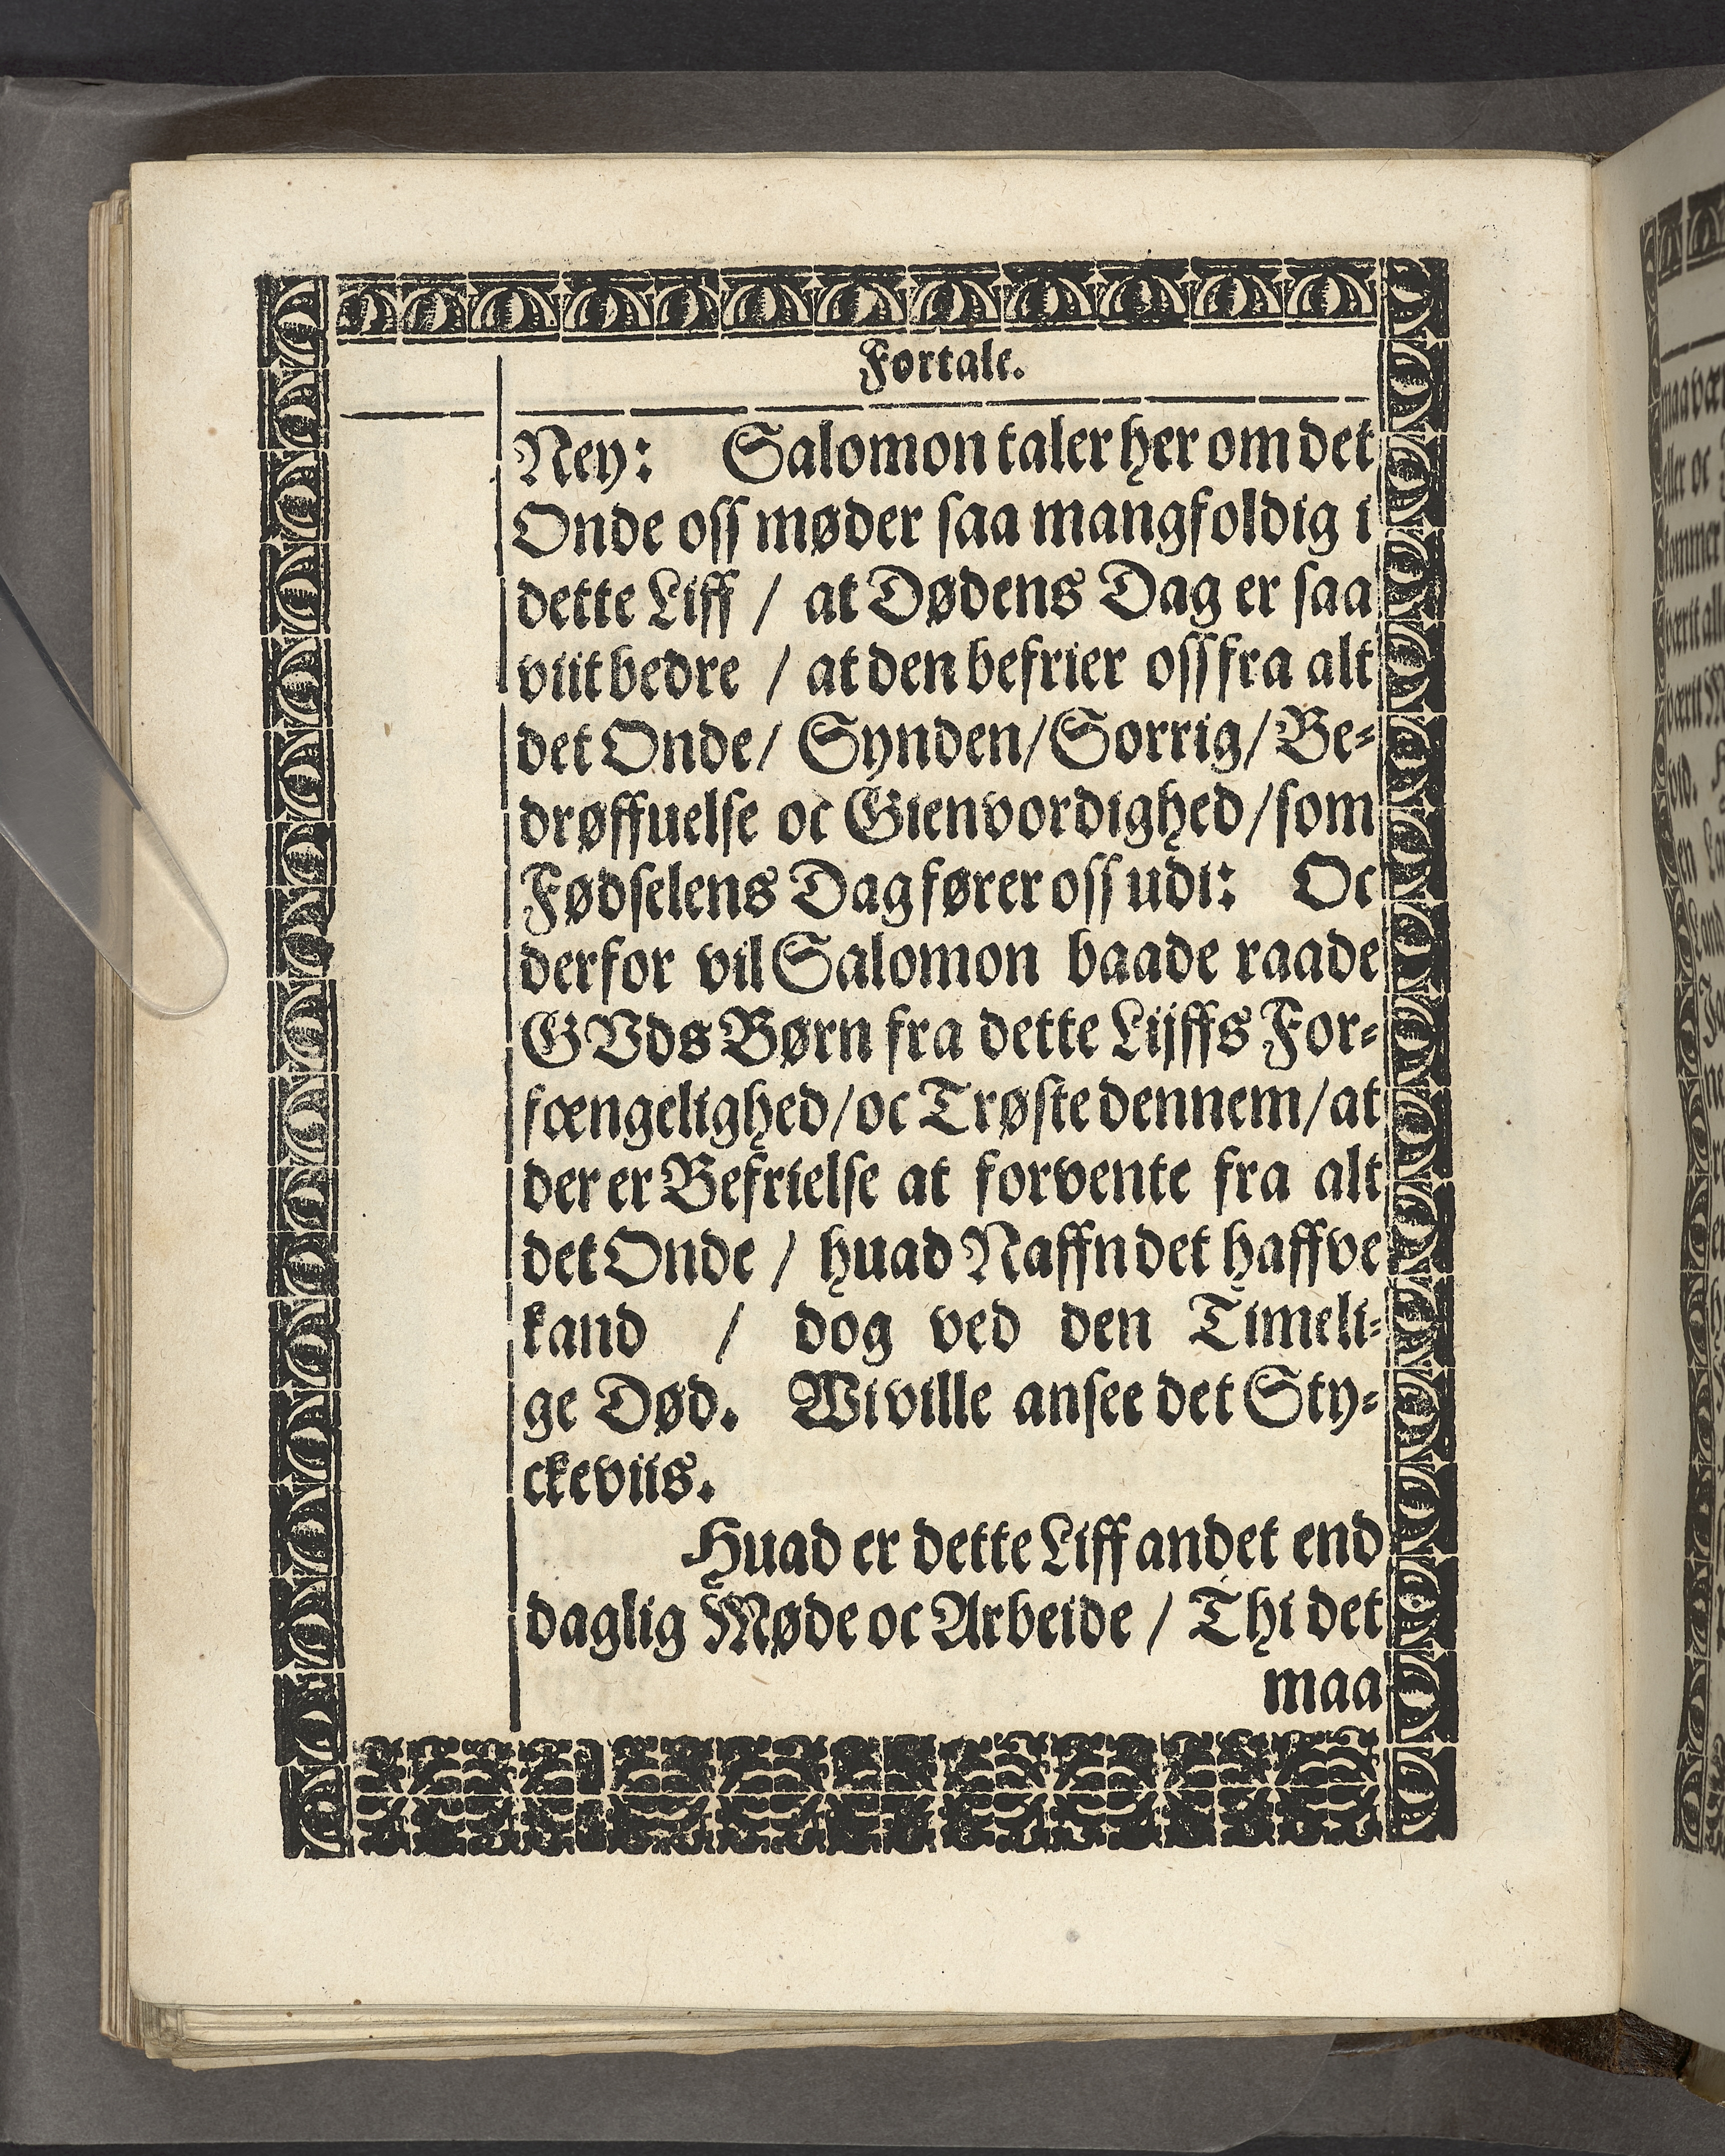 Fortale.
Ney: Salomon taler her om det
Onde oss møder saa mangfoldig i
dette Liff / at Dødens Dag er saa
viit bedre / at den befrier oss fra alt
det Onde / Synden / Sorrig / Be-
drøffuelse oc Gienvordighed / som
Fødselens Dag fører oss udi: Oc
derfor vil Salomon baade raade
GVds Børn fra dette Lijffs For-
fængelighed / oc Trøste dennem / at
der er Befrielse at forvente fra alt
det Onde / huad Naffn det haffve
kand / dog ved den Timeli-
ge Død. Wi ville ansee det Sty-
ckeviis.
Huad er dette Liff andet end
daglig Møde oc Arbeide / Thi det
maa